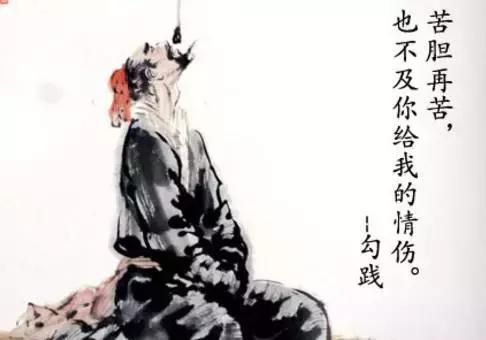 苦胆再苦，
也不及你给我的情伤。
--勾践